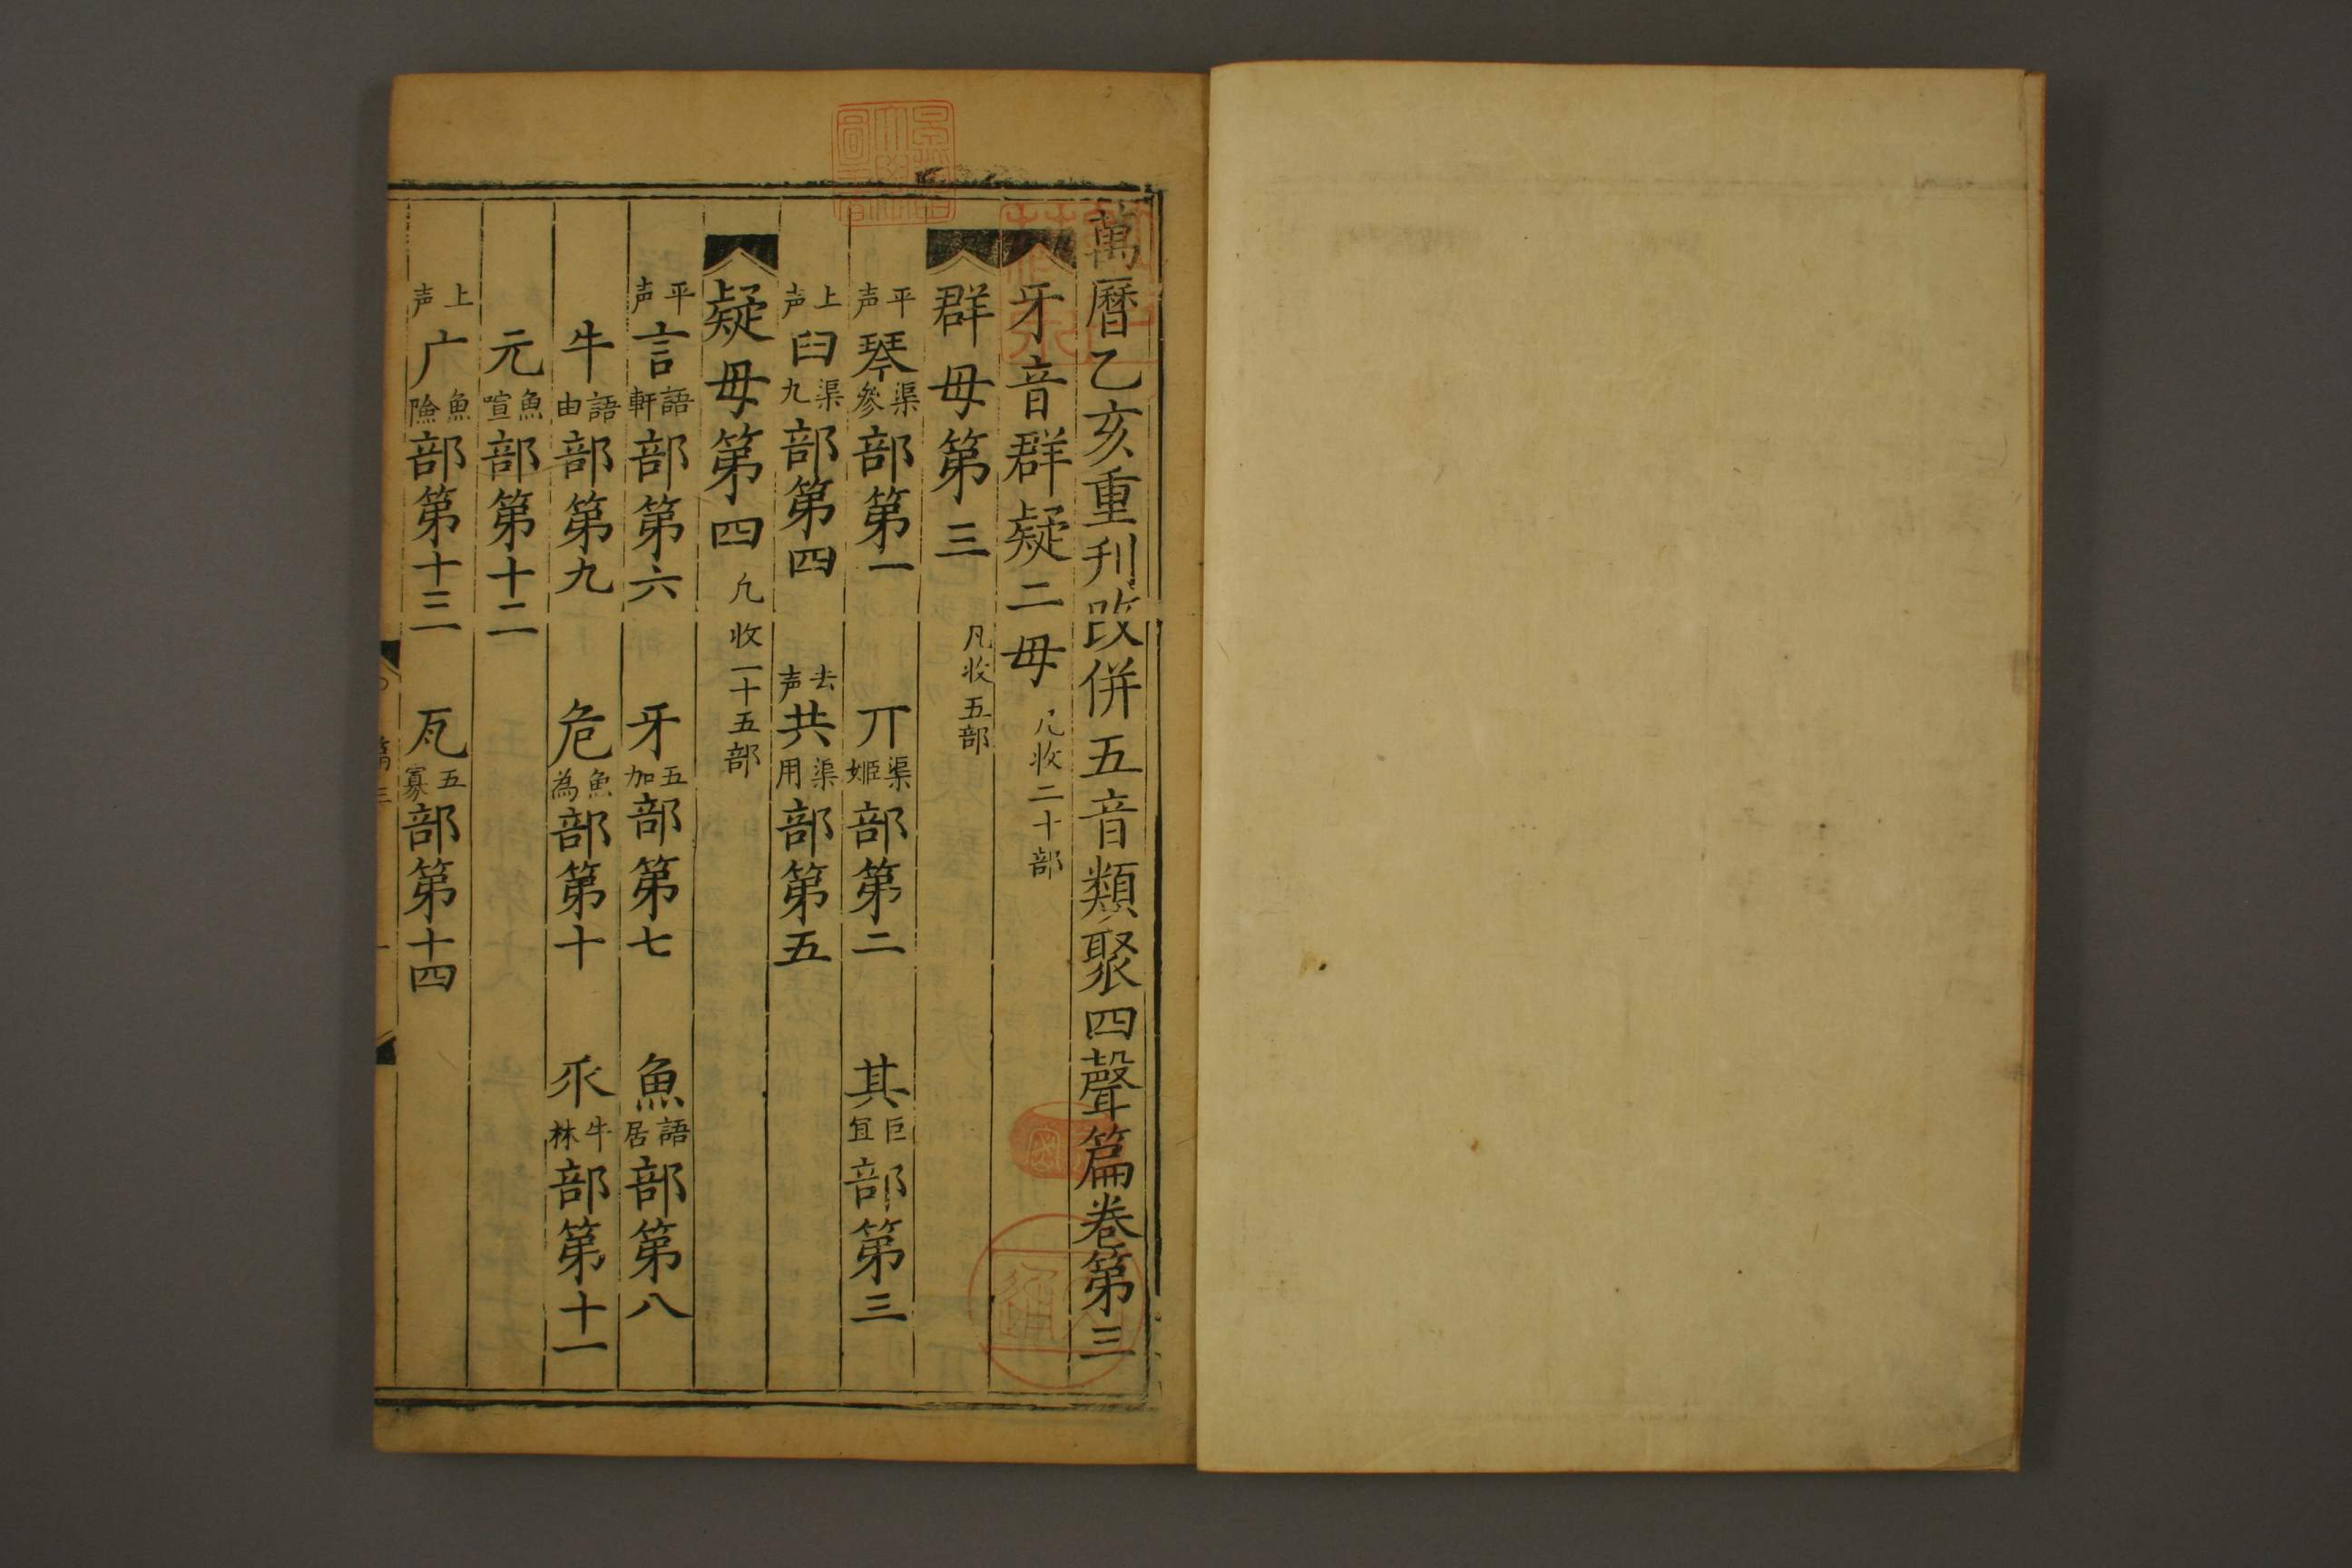 萬曆乙亥重刋改併五音類聚四聲篇卷第三
牙音群疑二母 凡收二十部
群母第三 凡收五部
平声 琴渠參部第一 丌渠姬部第二 其巨冝部第三
上声 臼渠九部第四 去声 共渠用部第五
疑母第四 凡收一十五部
平声 言語軒部第六 牙五加部第七 魚語居部第八
牛語由部第九 危魚為部第十 乑牛林部第十一
元魚喧部第十二
上声 广魚險部第十三 瓦五寡部第十四
篇三
一